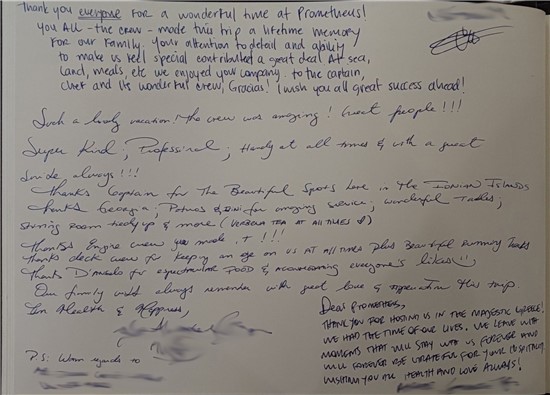 Thank you everyone for a wonderful time at Prometheus!
You ALL - the crew - made this trip a lifetime memory
For our family. Your attention to detail and ability
to make us feel special contributed a great deal. At sea,
land, meals, etc we enjoyed your company. To the captain,
chef and its wonderful crew, Gracias! I wish you all great success ahead!
Such a lovely vacation! The crew was amazing! Great people!!!
Super Kind, Professional, Handy at all times & with a great
smile always!!!
Thanks Captain for The Beautiful Spots here in The Ionian Islands
Thanks Georgia, & for amazing service, wonderful Tables,
Stirring room tidy up & more (VERBENA TEA AT ALL TIMES)
Thanks Engine crew you made it!!!
Thanks deck crew for keeping an eye on us AT ALL TIMES plus Beautiful
Thanks for spectacular FOOD & everyone's likes
Our family will always remember with great love & appreciation this trip.
In Health & Happiness,
P.S: Warm regards to
Dear Prometheus,
THANK YOU FOR HOSTING US IN THE MAJESTIC GREECE!
WE HAD THE TIME OF OUR LIVES. WE LEAVE WITH
MOMENTS THAT WILL STAY WITH US FOREVER AND
WILL FOREVER BE GRATEFUL FOR YOUR HOSPITALITY
WISHING YOU ALL HEALTH AND LOVE ALWAYS!